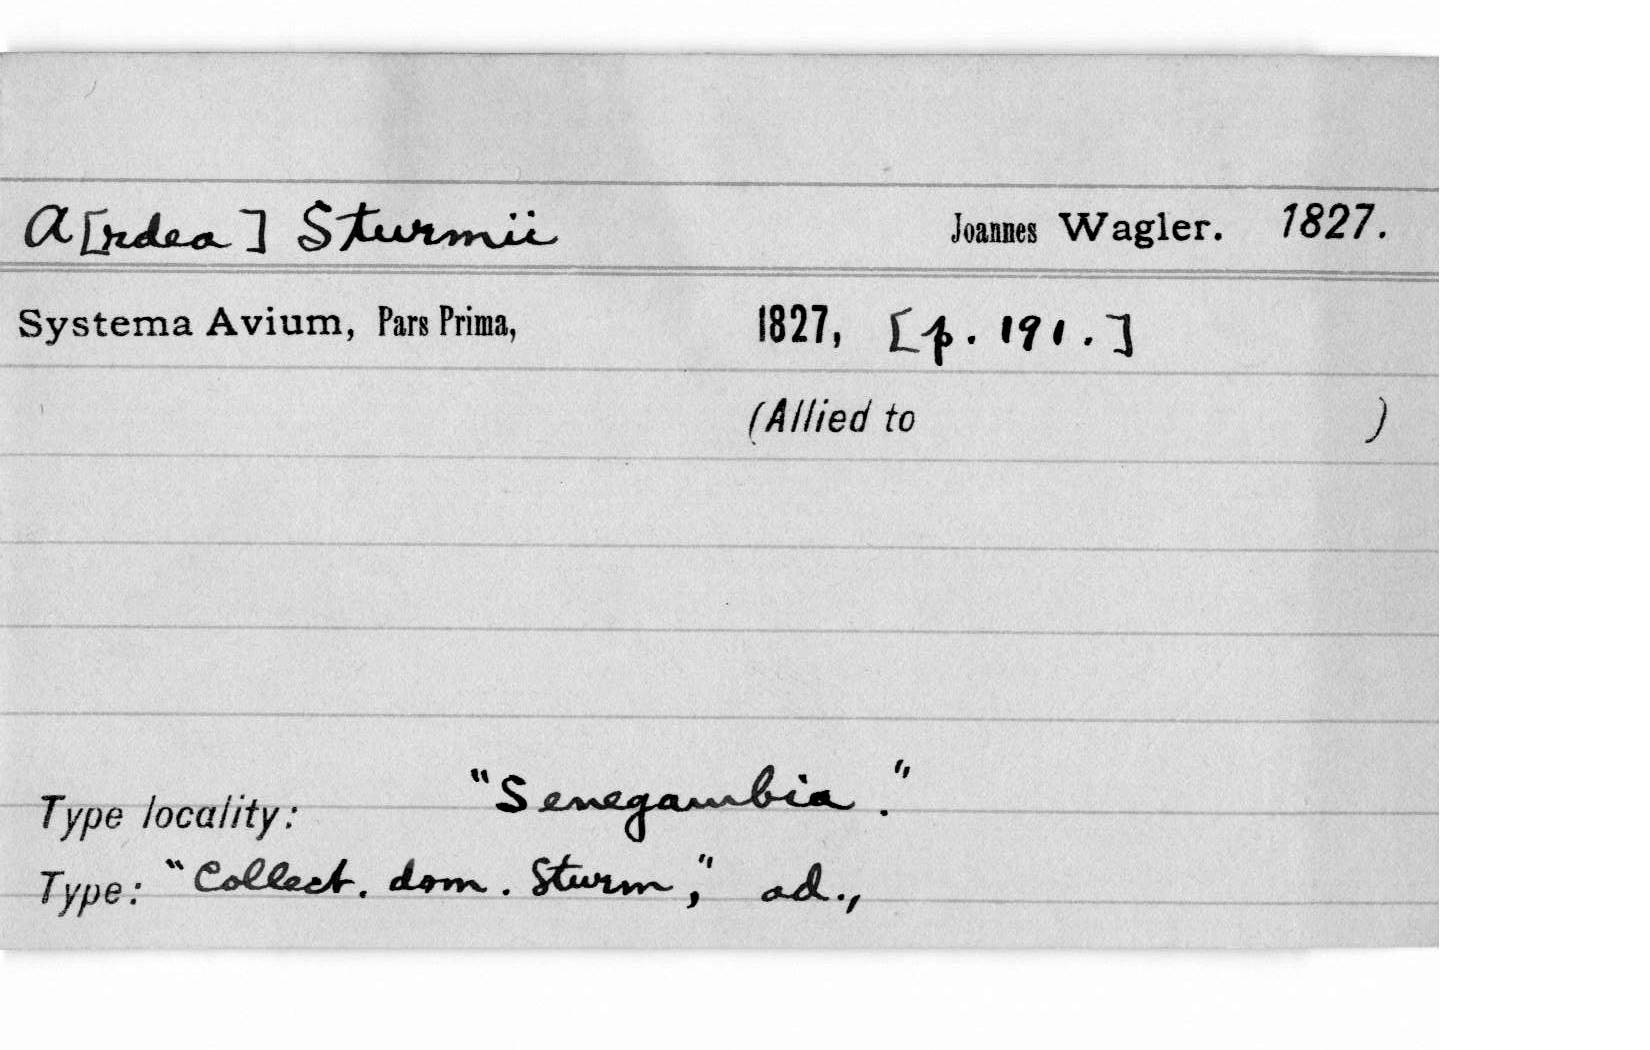 A[rdea] Sturmii Joannes Wagler. 1827.
Systema Avium, Pars Prima, 1827, [p. 191.]
(Allied to )
Type locality: "Senegambia."
Type: "Collect. dom. Sturm," ad.,